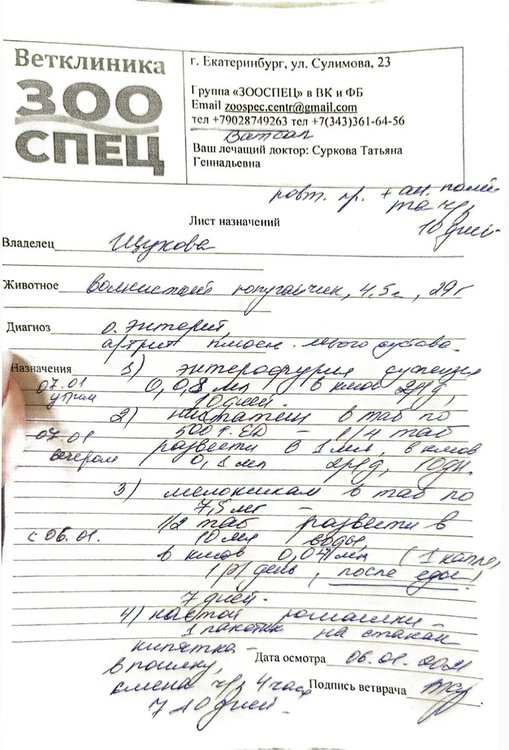 Ветклиника
ЗОО
СПЕЦ
г. Екатеринбург, ул. Сулимова, 23
Группа «ЗООСПЕЦ» в ВК и ФБ
Email zoospec.centr@gmail.com
тел +79028749263 тел +7(343)361-64-56
Ватсап
Ваш лечащий доктор: Суркова Татьяна
Геннадьевна
повт. пр. + ан. помёта
чр,
10 дней
Лист назначений
Владелец Щукова
Животное волнистый попугайчик, 4.5 г, 29 г
Диагноз о. энтерит,
артрит плюсн. левого сустава.
Назначения 1) энтерофурил суспензия
07.01 утром 0,08 мл в клюв 2 р/д,
10 дней.
2) нистатин в таб по
500 т. ЕД - 1/4 таб
07.01 вечером развести в 1 мл, в клюв
0,1 мл 2р/д, 10 дн.
3) мелоксикам в таб по
7,5 мг -
1/2 таб развести в
с 06.01. 10 мл воды,
в клюв 0,04 мл (1 капле,
1 р/день, после еды!
7 дней.
4) настой ромашки -
1 пакетик на стакан
кипятка -
в поилку,
смена чр/з 4 часа
7-10 дней.
Дата осмотра 06.01.2021
Подпись ветврача